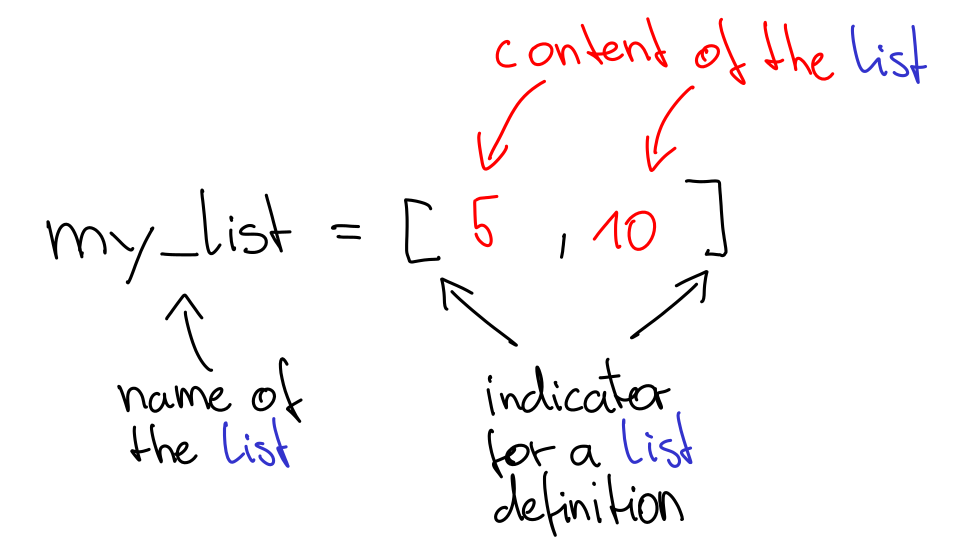 content of the list
my_list = [ 5 , 10 ]
name of
the list
indicator
for a list
definition